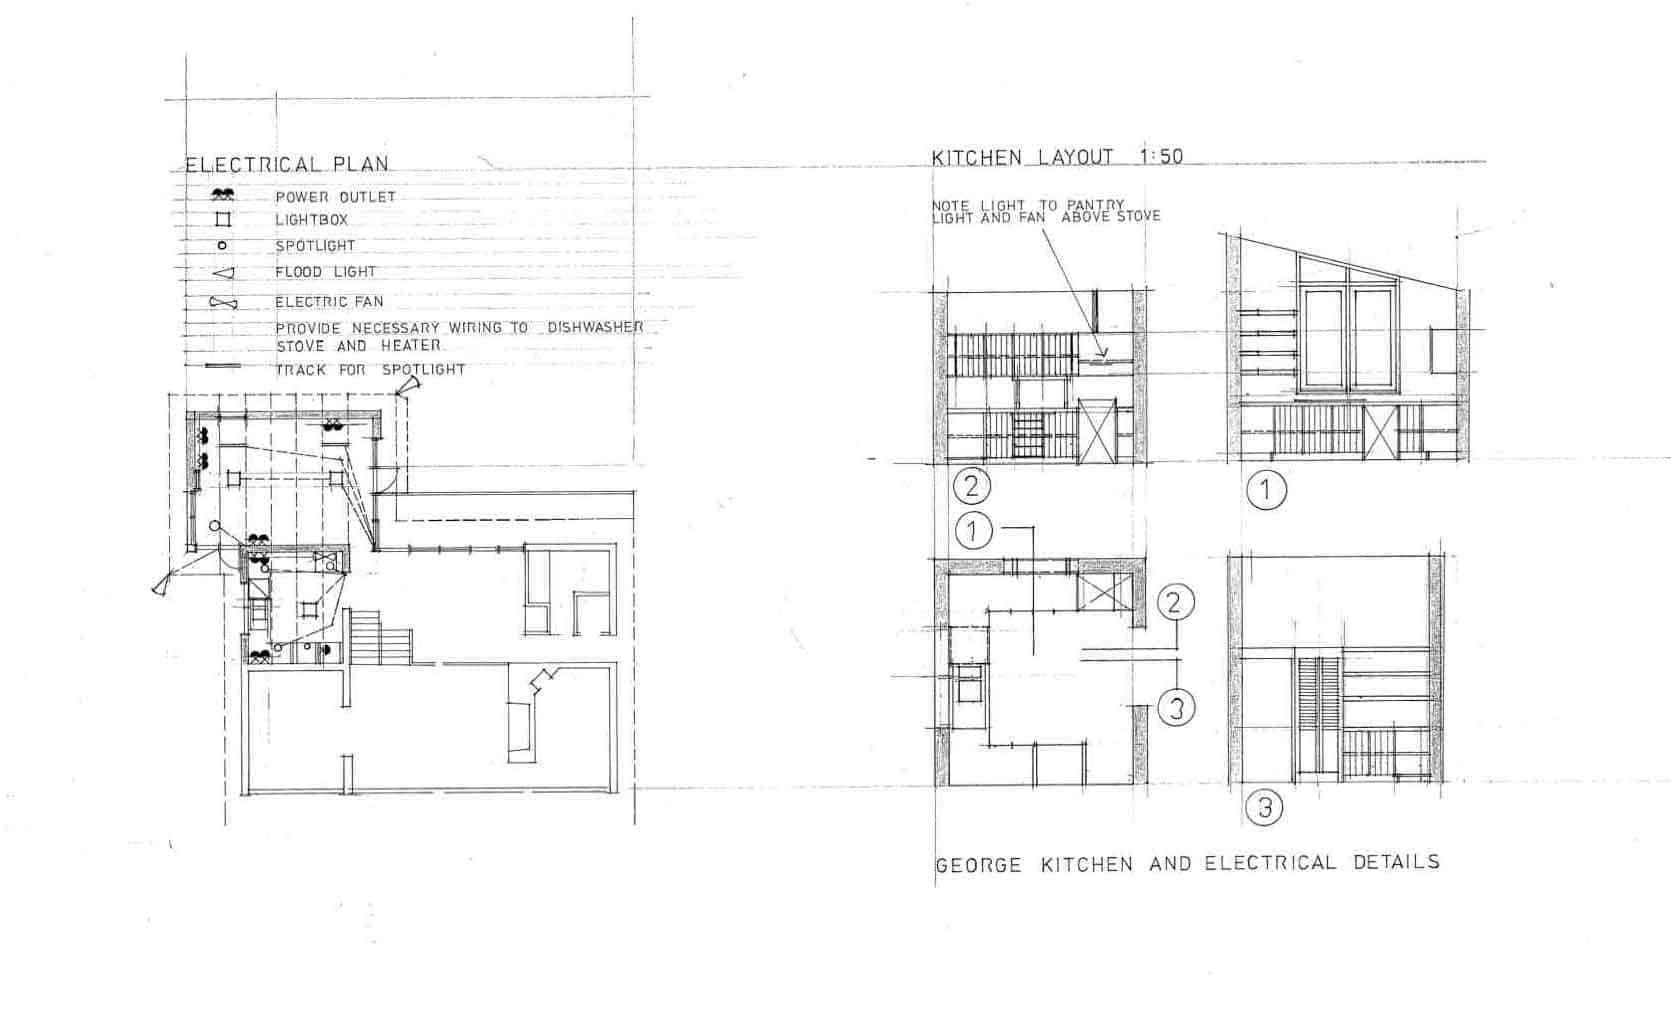 ELECTRICAL PLAN
POWER OUTLET
LIGHTBOX
SPOTLIGHT
FLOOD LIGHT
ELECTRIC FAN
PROVIDE NECESSARY WIRING TO DISHWASHER
STOVE AND HEATER.
TRACK FOR SPOTLIGHT
KITCHEN LAYOUT 1:50
NOTE LIGHT TO PANTRY
LIGHT AND FAN ABOVE STOVE
2
1
1
2
3
3
GEORGE KITCHEN AND ELECTRICAL DETAILS